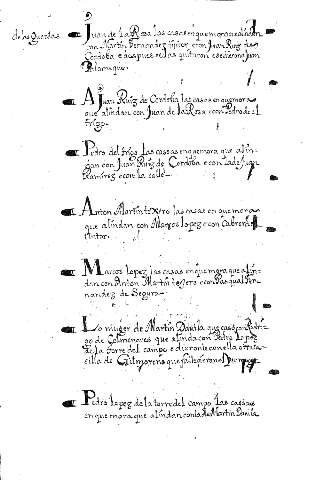 de las guardas
Juan de la Rosa las casas en que mora alindan
con Martin Fernandez con Juan Ruiz de
Cordoba e despues se las quitaron e se dieron a Juan
A Juan Ruiz de Cordoba las casas en que mora
que alindan con Juan de la Rosa e con Pedro del
trigo
Pedro del trigo las casas en que mora que alin
dan con Juan Ruiz de Cordoba e con Juan
Ramirez e con la calle
Anton Martin texero las casas en que mora
que alindan con Marcos Lopez e con Cabrera
Marcos Lopez las casas en que mora que alin
dan con Anton Martin texero e con Pasqual Fer
nandez de Segura
La muger de Martin Davila que casó con Rodri
go de Colmenares que alinda con Pedro Lopez
de la torre del campo e dieronle con ella otra ca
silla de Gil moreno que fallecieron
Pedro Lopez de la torre del campo las casas
en que mora que alindan con la de Martin Davila